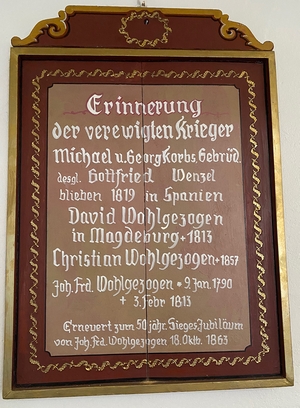 Erinnerung
der verewigten Krieger
Michael u. Georg Korbs, Gebrüd.
desgl. Gottfried Wenzel
blieben 1819 in Spanien
David Wohlgezogen
in Magdeburg + 1813
Christian Wohlgezogen + 1857
Joh. Frd. Wohlgezogen * 9 Jan. 1790
+ 3. Febr 1813
Erneuert zum 50jähr. Sieges-Jubiläum
von Joh. Frd. Wohlgezogen 18. Okt. 1863